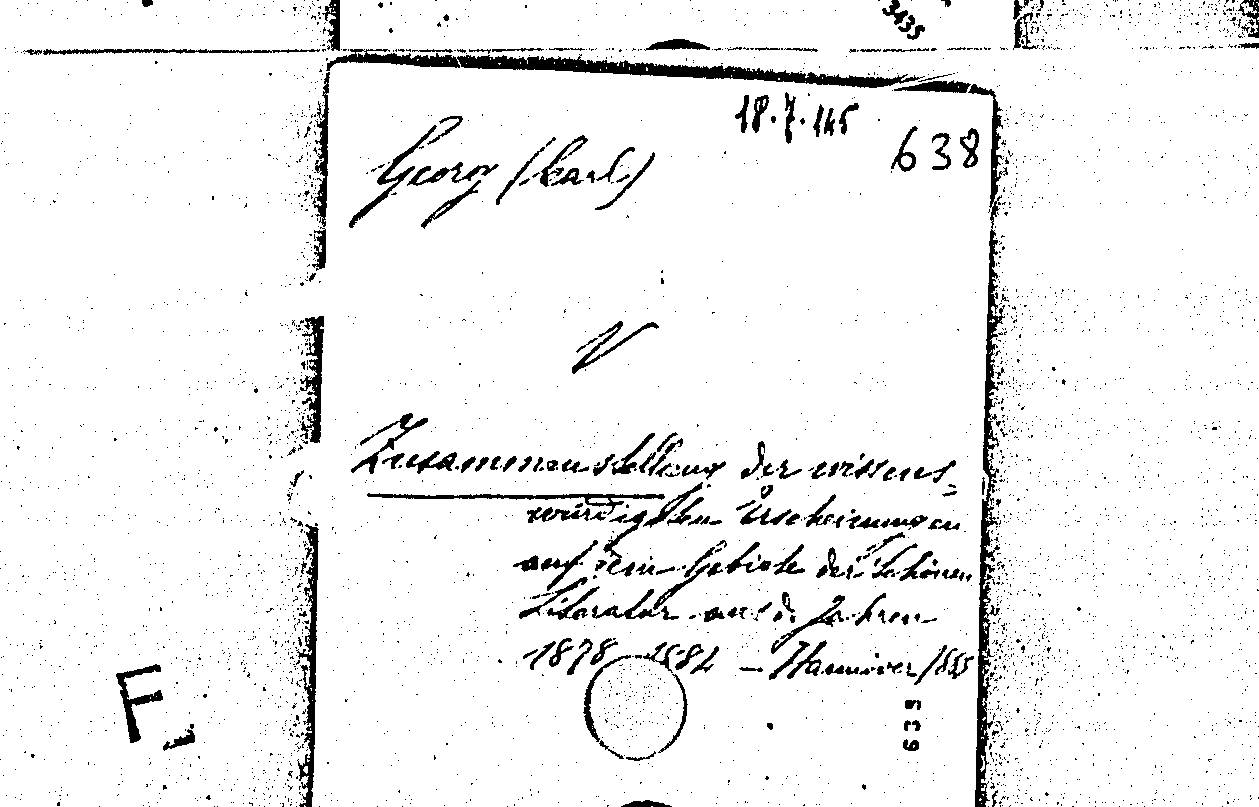 3435
18.7.145
638
Georg (Carl)
V
Zusammenstellung der wissens-
würdigsten Erscheinungen
auf dem Gebiete der schönen
Literatur aus d. Jahren
1878 1884 - Hannover 1885
639
F